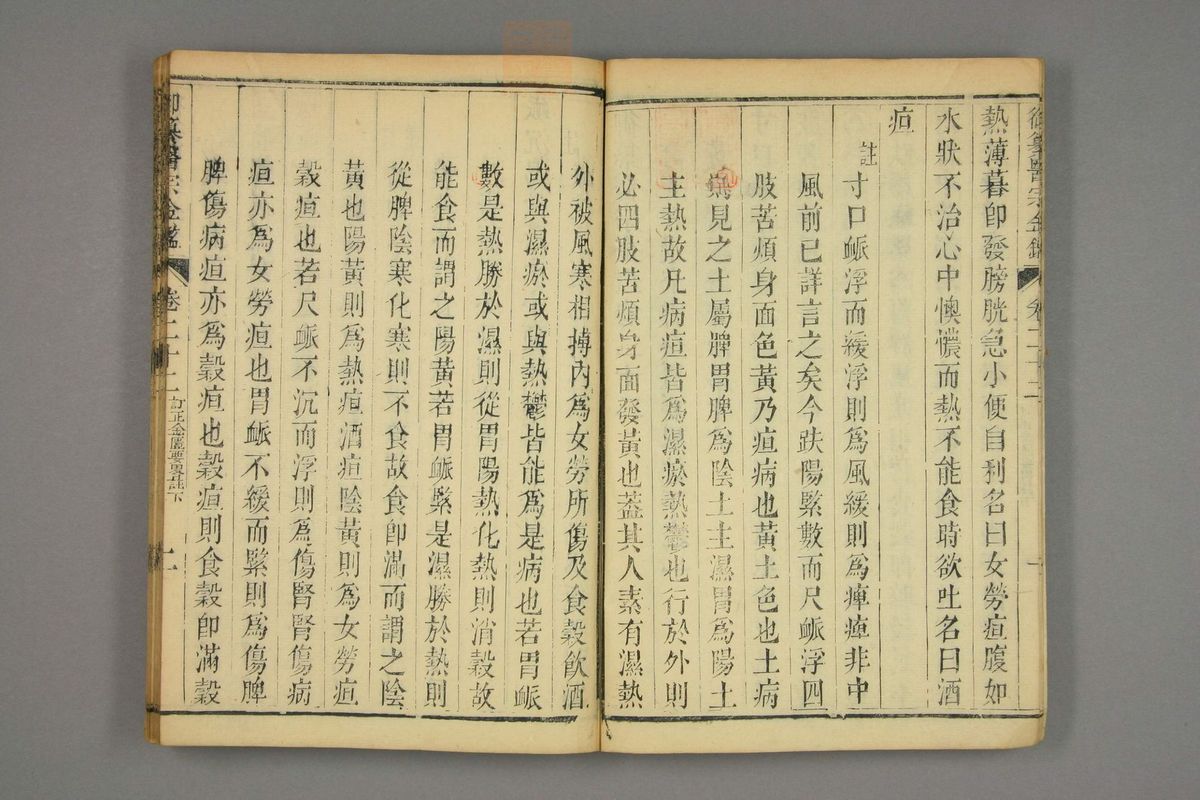 御纂醫宗金鑑 卷二十二 一
熱薄暮卽發膀胱急小便自利名曰女勞疸腹如
水狀不治心中懊憹而熱不能食時欲吐名曰酒
疸
註
寸口脈浮而緩浮則爲風緩則爲痺痺非中
風前已詳言之矣今趺陽緊數而尺脈浮四
肢苦煩身面色黃乃疸病也黃土色也土病
則見之土屬脾胃脾爲陰土主濕胃爲陽土
主熱故凡病疸皆爲濕瘀熱鬱也行於外則
必四肢苦煩身面發黃也葢其人素有濕熱
外被風寒相搏內爲女勞所傷及食穀飲酒
或與濕瘀或與熱鬱皆能爲是病也若胃脈
數是熱勝於濕則從胃陽熱化熱則消穀故
能食而謂之陽黃若胃脈緊是濕勝於熱則
從脾陰寒化寒則不食故食卽滿而謂之陰
黃也陽黃則爲熱疸酒疸陰黃則爲女勞疸
穀疸也若尺脈不沉而浮則爲傷腎腎傷病
疸亦爲女勞疸也胃脈不緩而緊則爲傷脾
脾傷病疸亦爲穀疸也穀疸則食穀卽滿穀
御纂醫宗金鑑 卷二十二 訂正金匱要畧註下 二